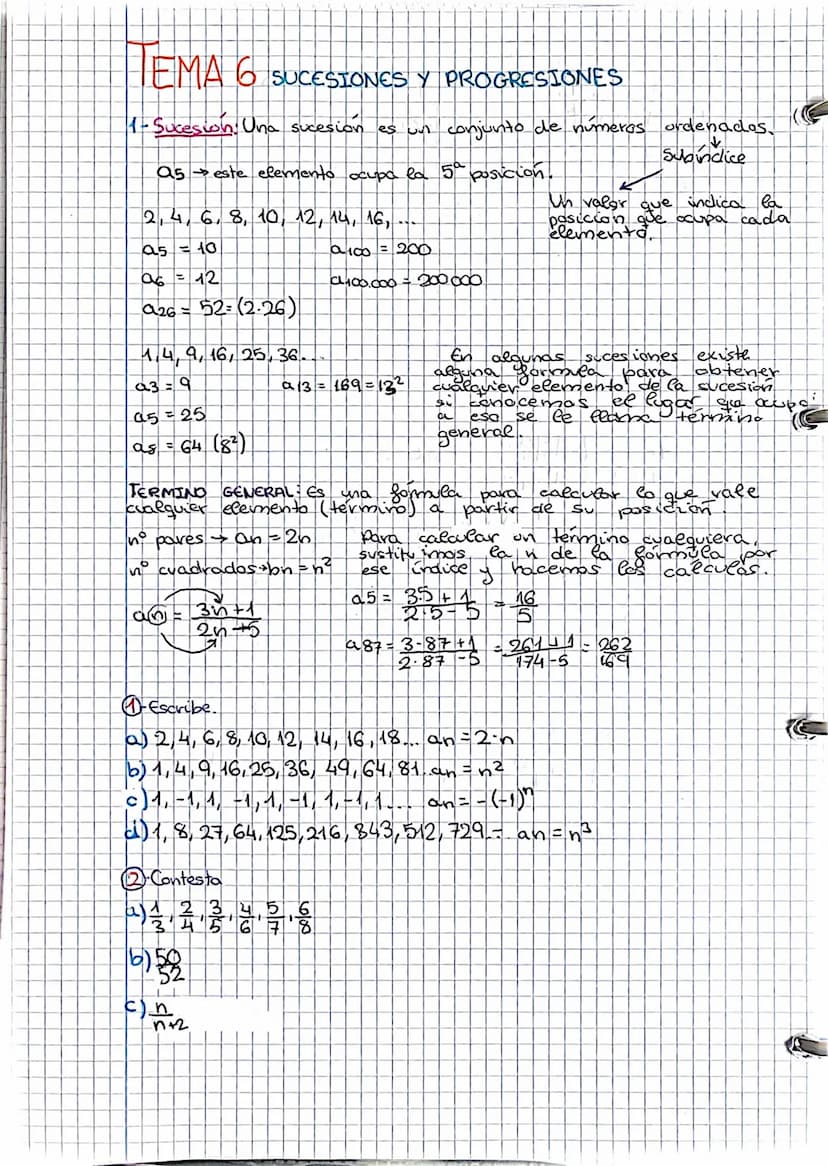 TEMA 6 SUCESIONES Y PROGRESIONES
1-Sucesión: Una sucesión es un conjunto de números ordenados.
↓
Subíndice
a5 → este elemento ocupa la 5ª posición.
Un valor que indica la
posición que ocupa cada
elemento.
2, 4, 6, 8, 10, 12, 14, 16, ...
a5 = 10 a100 = 200
a6 = 12 a100.000 = 200000
a26 = 52 = (2·26)
1, 4, 9, 16, 25, 36...
a3 = 9 a13 = 169 = 13²
a5 = 25
a8 = 64 (8²)
En algunas sucesiones existe
alguna fórmula para obtener
cualquier elemento de la sucesión
si conocemos el lugar que ocupa
a eso se le llama término
general.
TERMINO GENERAL: Es una fórmula para calcular lo que vale
cualquier elemento (término) a partir de su posición.
nº pares → an = 2n
nº cuadrados → bn = n²
Para calcular un término cualquiera,
sustituimos la n de la fórmula por
ese índice y hacemos los cálculos.
an = 3n+1 / 2n-5
a5 = 3·5+1 / 2·5-5 = 16/5
a87 = 3·87+1 / 2·87-5 = 261+1 / 174-5 = 262/169
①-Escribe.
a) 2, 4, 6, 8, 10, 12, 14, 16, 18... an = 2·n
b) 1, 4, 9, 16, 25, 36, 49, 64, 81... an = n²
c) 1, -1, 1, -1, 1, -1, 1, -1, 1... an = -(-1)ⁿ
d) 1, 8, 27, 64, 125, 216, 843, 512, 729... an = n³
②-Contesta
a) 1/3, 2/4, 3/5, 4/6, 5/7, 6/8
b) 50/52
c) n/n+2